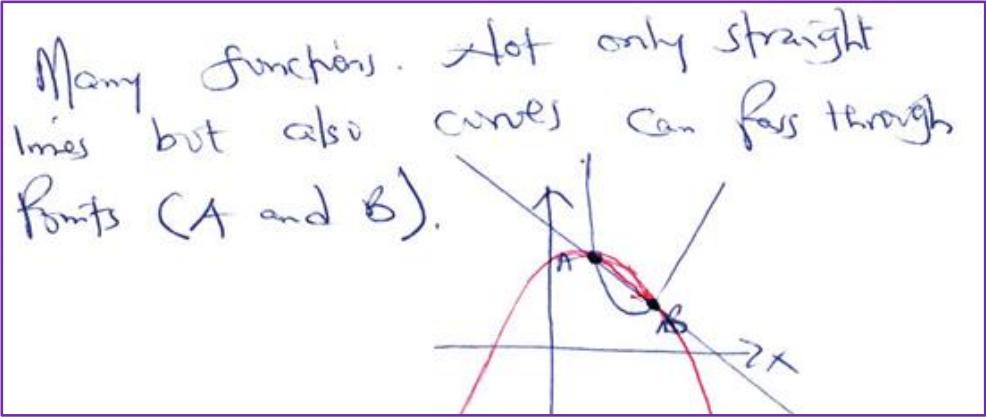 Many functions. Not only straight
lines but also curves can pass through
Points (A and B).
A
B
x